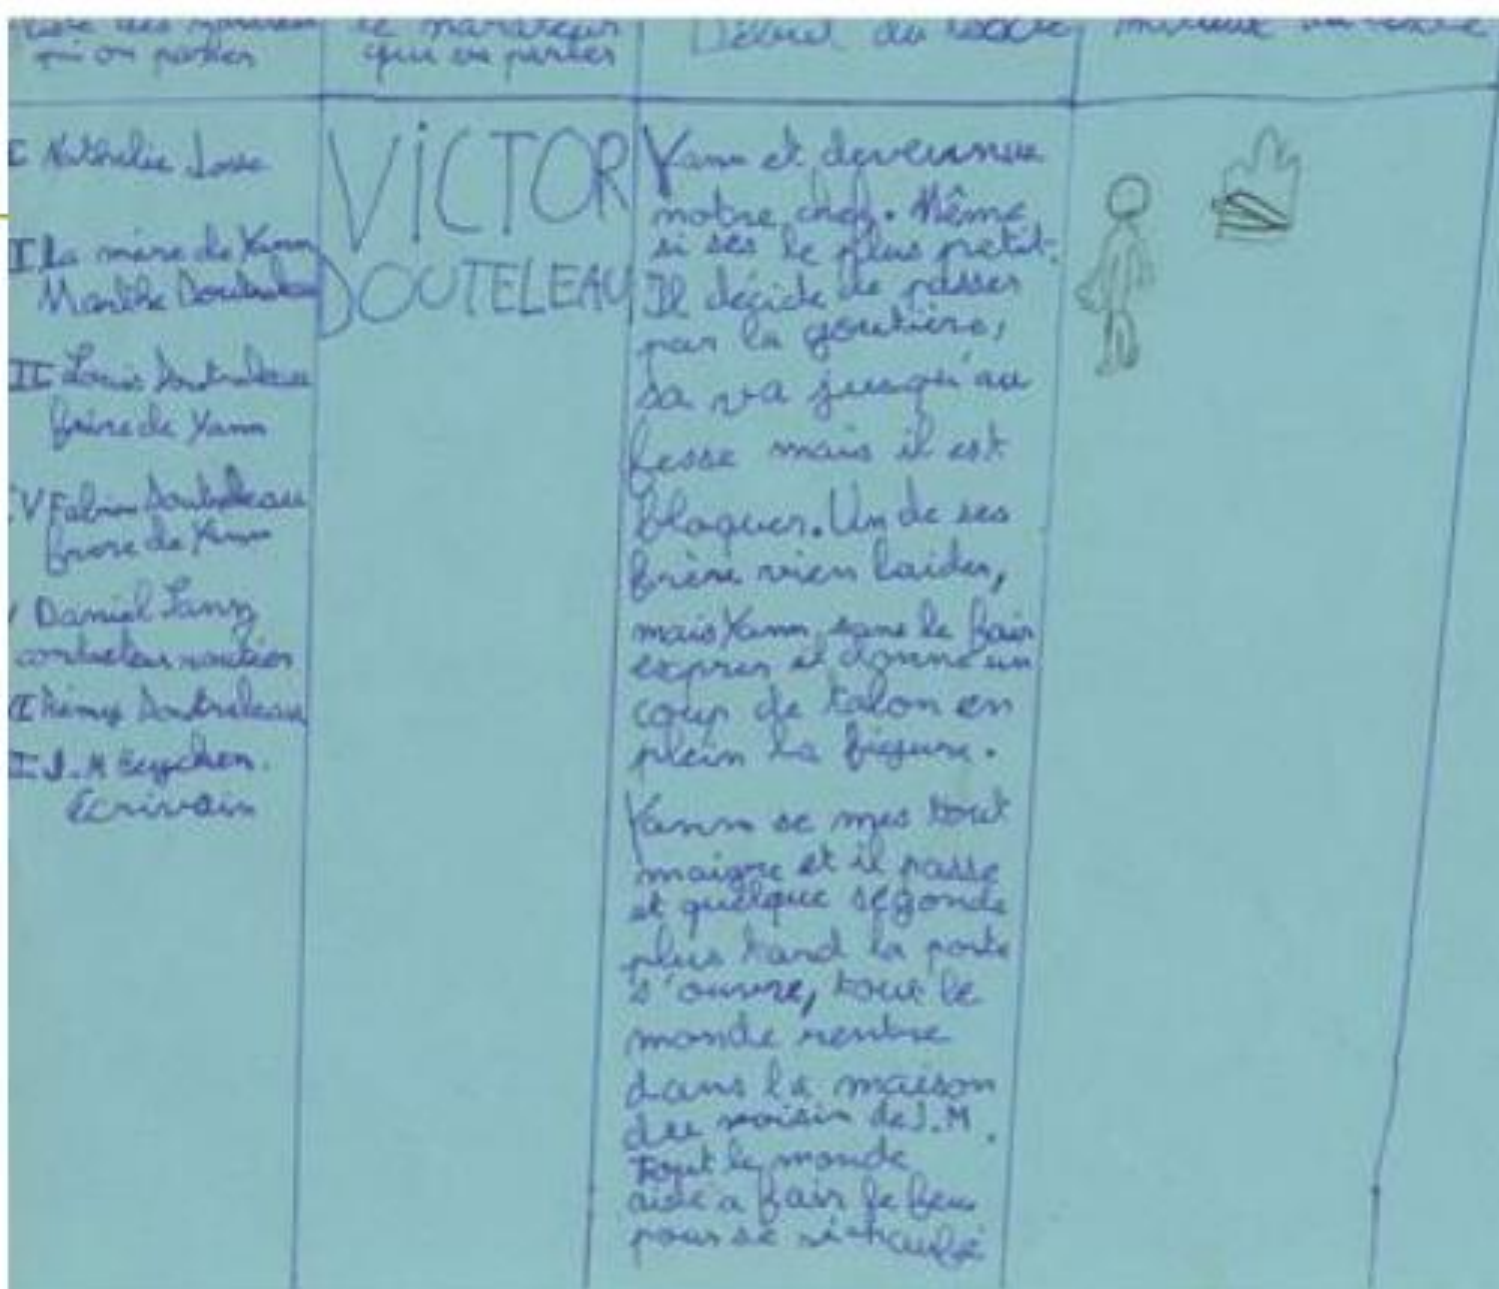 qui on parler
I Nathalie Josse
I La mère de Yann
Marthe Doutreleau
II Louis Doutreleau
frère de Yann
V Fabien Doutreleau
frere de Yann
Daniel Sanz
routier
I Rémy Doutreleau
I J.M
Écrivain
le narrateur
qui en parler
VICTOR
DOUTELEAU
Début du texte
Yann et devenue
notre chef. Même
si ses le plus petit.
Il décide de passer
par la goutière,
sa va jusqu'au
fesse mais il est
bloquer. Un de ses
frère vien laider,
mais Yann sans le fair
expres et donne un
coup de talon en
plein la figure.
Yann se mes tout
maigre et il passe
et quelque segonde
plus tard la porte
s'ouvre, tout le
monde rentre
dans la maison
du voisin de J.M.
Tout le monde
aide a fair le feu
pour se
milieu du texte